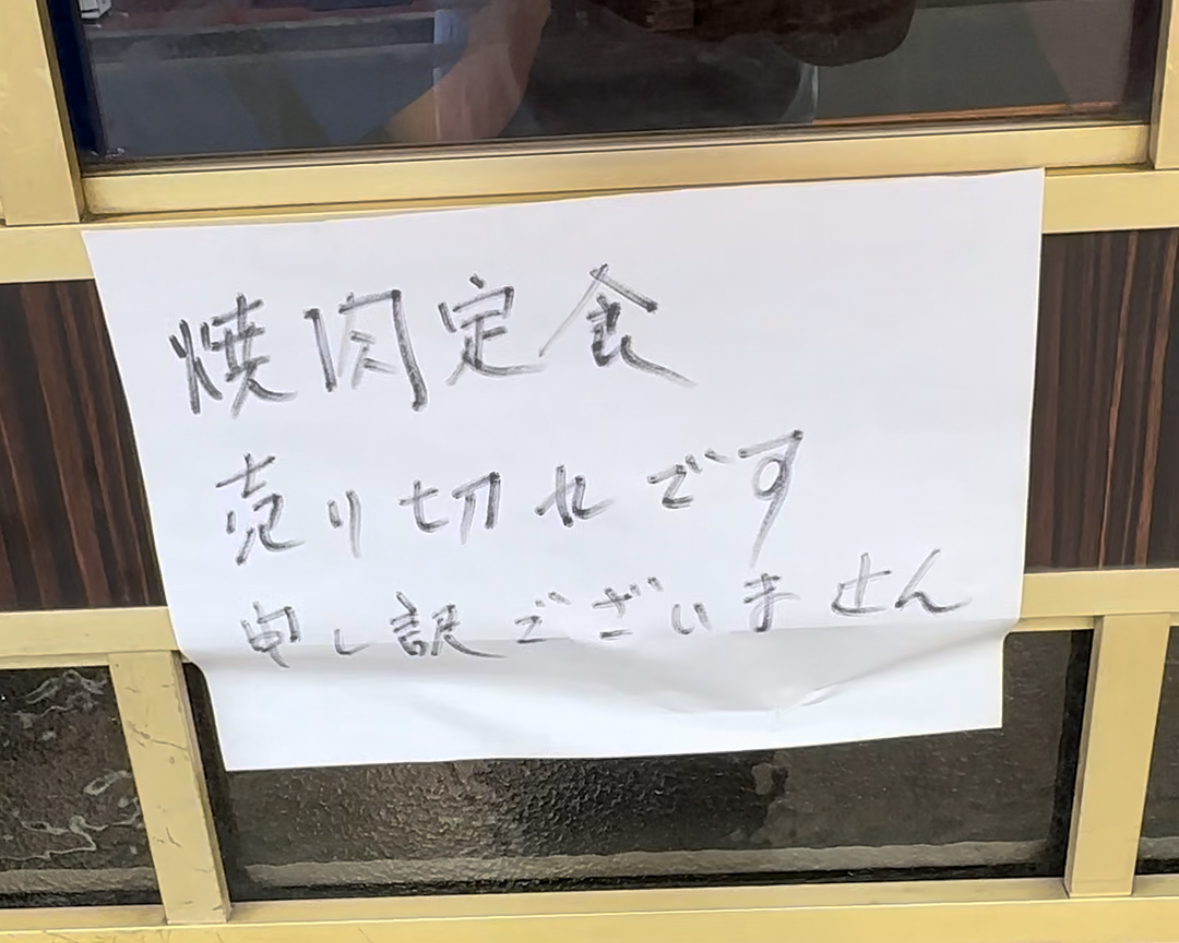 焼肉定食
売り切れです
申し訳ございません